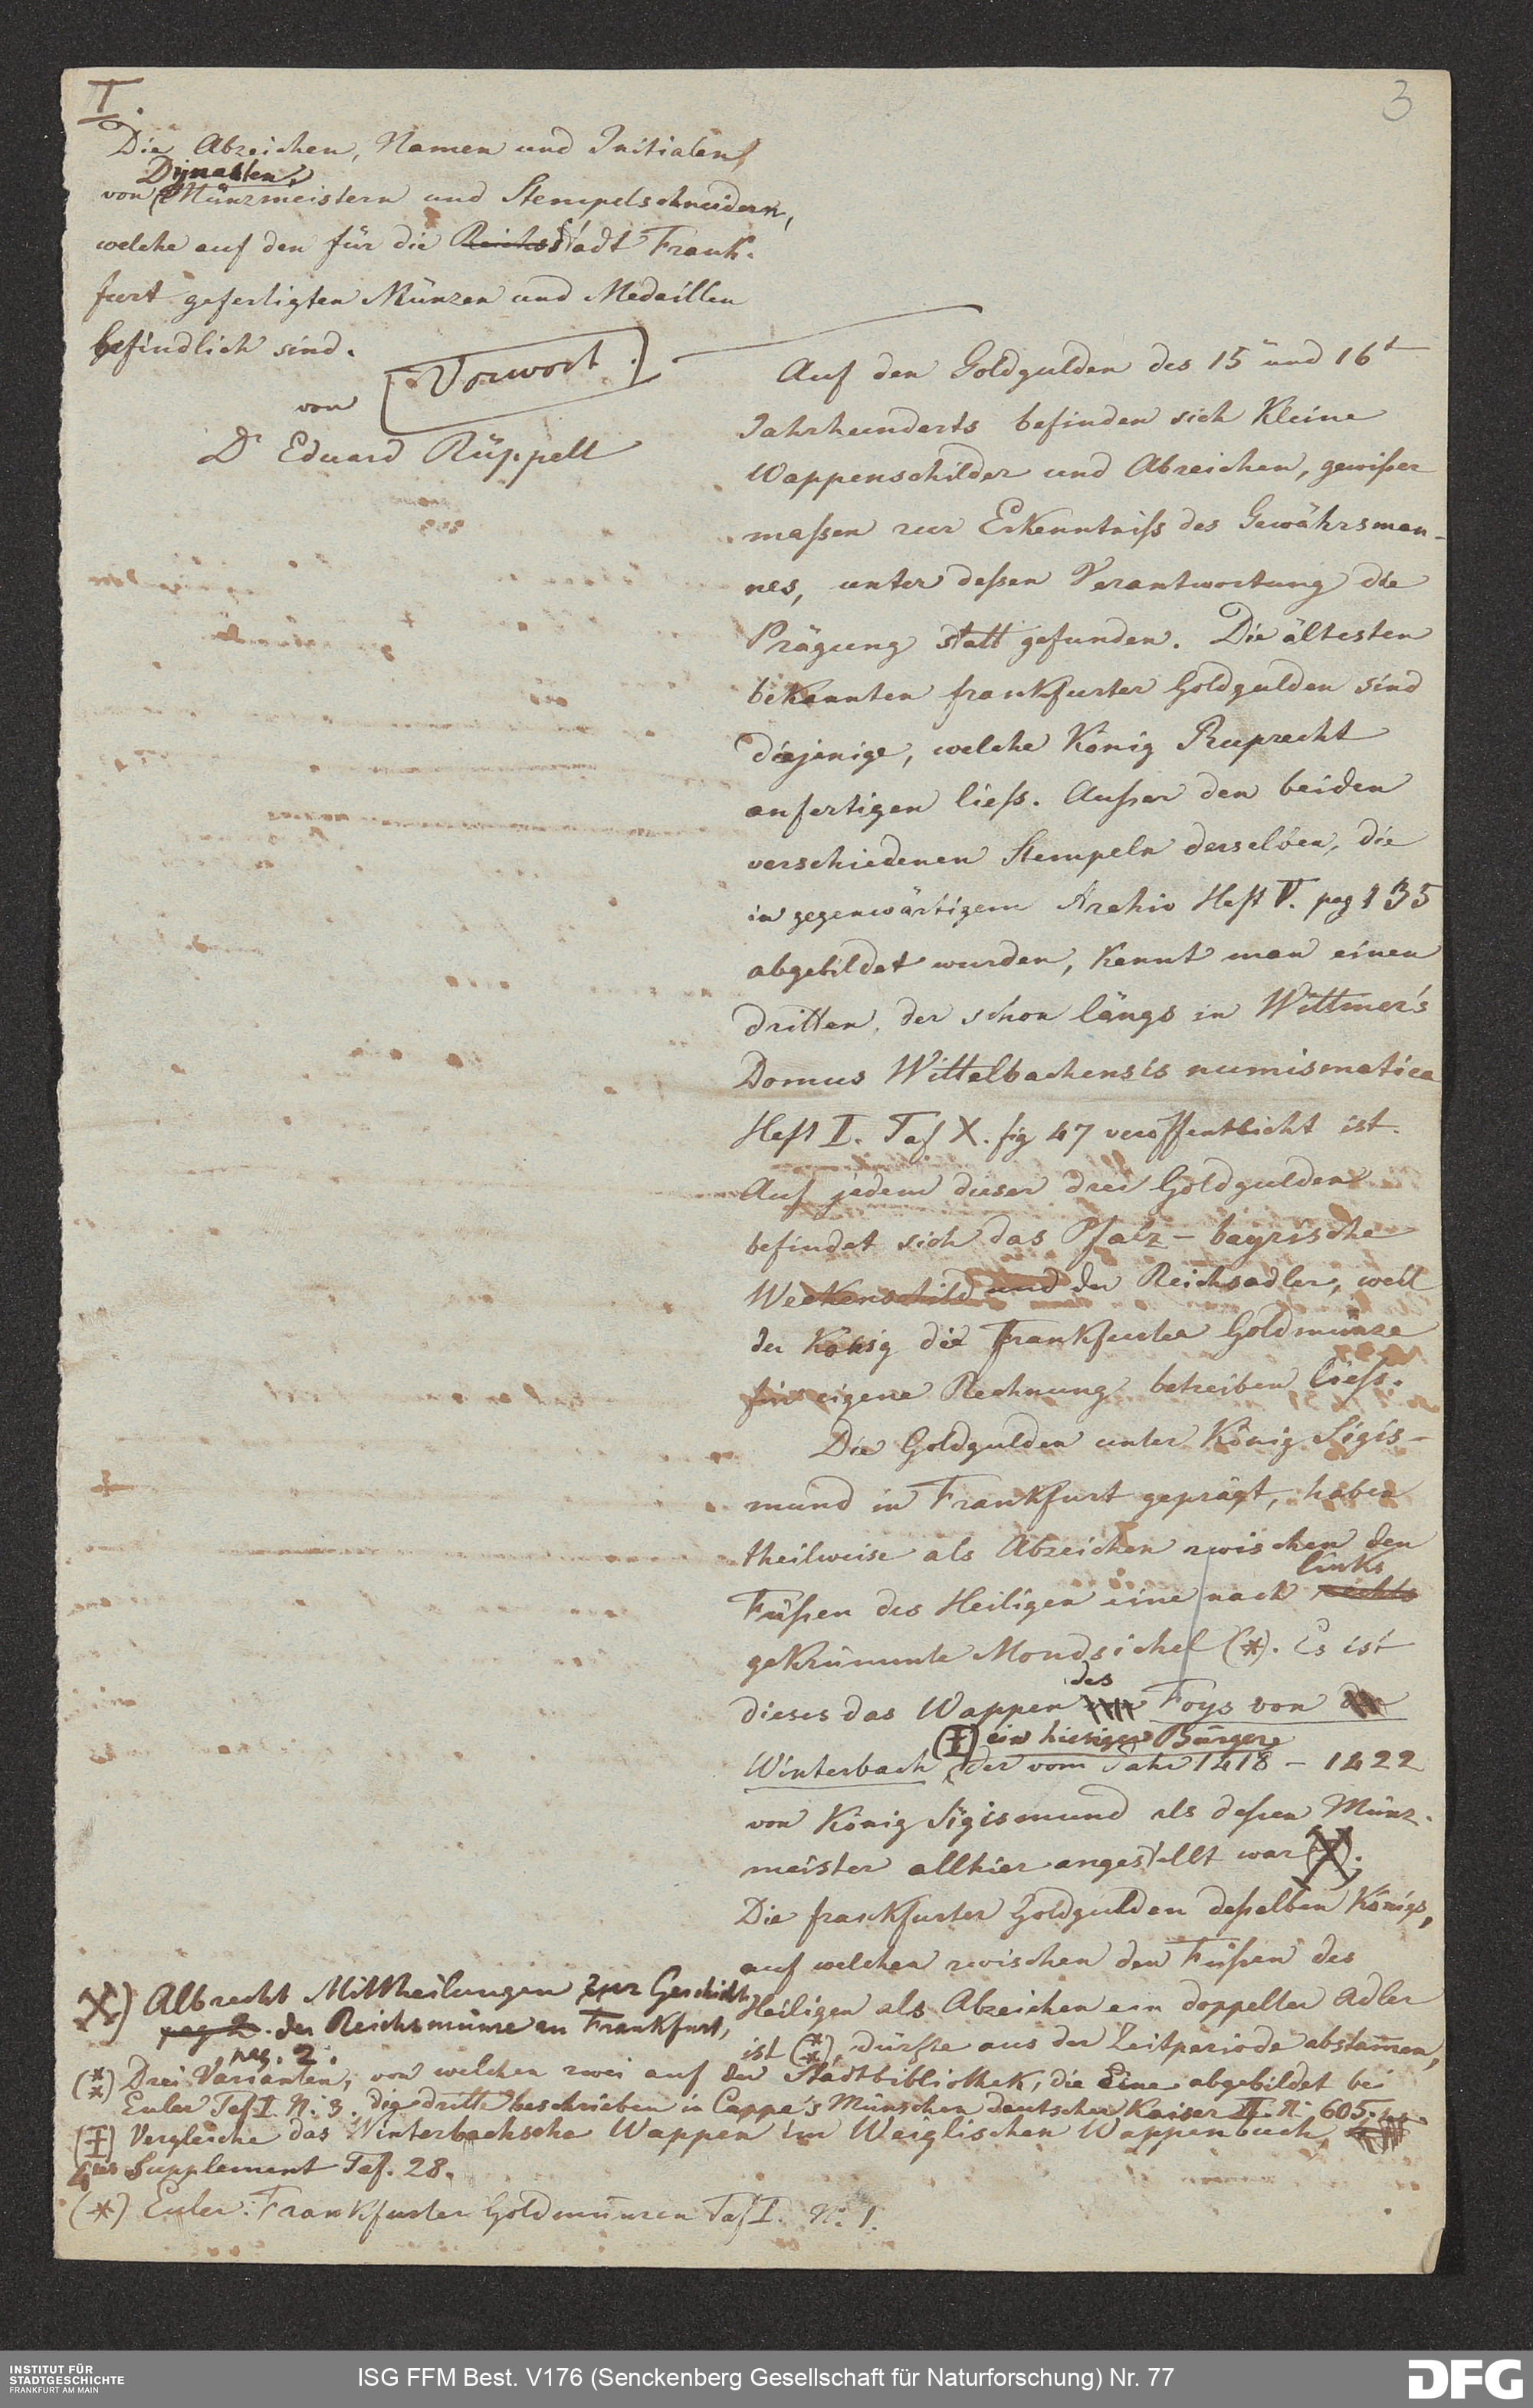 I.
3
Die Abzeichen, Namen und Initialen,
Dynasten,
von Münzmeistern und Stempelschneidern,
welche auf den für die Reichsstadt Frank-
furt gefertigten Münzen und Medaillen
befindlich sind.
Vorwort.
von
Dr Eduard Rüppell
Auf den Goldgulden des 15 und 16t
Jahrhunderts befinden sich kleine
Wappenschilder und Abzeichen, gewißer
maßen zur Erkenntniß des Gewährsman-
nes, unter deßen Verantwortung die
Prägung statt gefunden. Die ältesten
bekannten frankfurter Goldgulden sind
diejenige, welche König Ruprecht
anfertigen ließ. Außer den beiden
verschiedenen Stempeln derselben, die
in gegenwärtigem Archiv Heft V. pag 135
abgebildet wurden, kennt man einen
dritten, der schon längs in Wittmer's
Domus Wittelbachensis numismatica
Heft I. Taf X. fig 47 veröffentlicht ist.
Auf jedem dieser drei Goldgulden
befindet sich das Pfalz-bayrische
Weckenschild und der Reichsadler, weil
der König die Frankfurter Goldmünze
für eigene Rechnung betreiben ließ.
Die Goldgulden unter König Sigis-
mund in Frankfurt geprägt, haben
theilweise als Abzeichen zwischen den
links
Füßen des Heiligen eine nach rechts
gekrümmte Mondsichel (*). Es ist
des
dieses das Wappen Foys von der
(‡) ein hiesiger Bürger
Winterbach, der vom Jahr 1418 - 1422
von König Sigismund als deßen Münz-
meister allhier angestellt war.
Die frankfurter Goldgulden deßelben Königs,
auf welchen zwischen den Füßen des
Heiligen als Abzeichen ein doppelter Adler
ist (**), dürfte aus der Zeitperiode abstamen,
X) Albrecht Mittheilungen zur Geschichte
pag 2. der Reichsmünze zu Frankfurt,
pag. 2.
(**) Drei Varianten, von welchen zwei auf der Stadtbibliothek, die Eine abgebildet bei
Euler Taf I. N: 3. die dritte beschrieben in Cappe's Münzen deutscher Kaiser II. N: 605.
(‡) Vergleiche das Winterbachsche Wappen im Weiglischen Wappenbuch
4tes Supplement Taf. 28.
(*) Euler: Frankfurter Goldmünzen Taf I. N: 1.
INSTITUT FÜR
STADTGESCHICHTE
FRANKFURT AM MAIN
ISG FFM Best. V176 (Senckenberg Gesellschaft für Naturforschung) Nr. 77
DFG